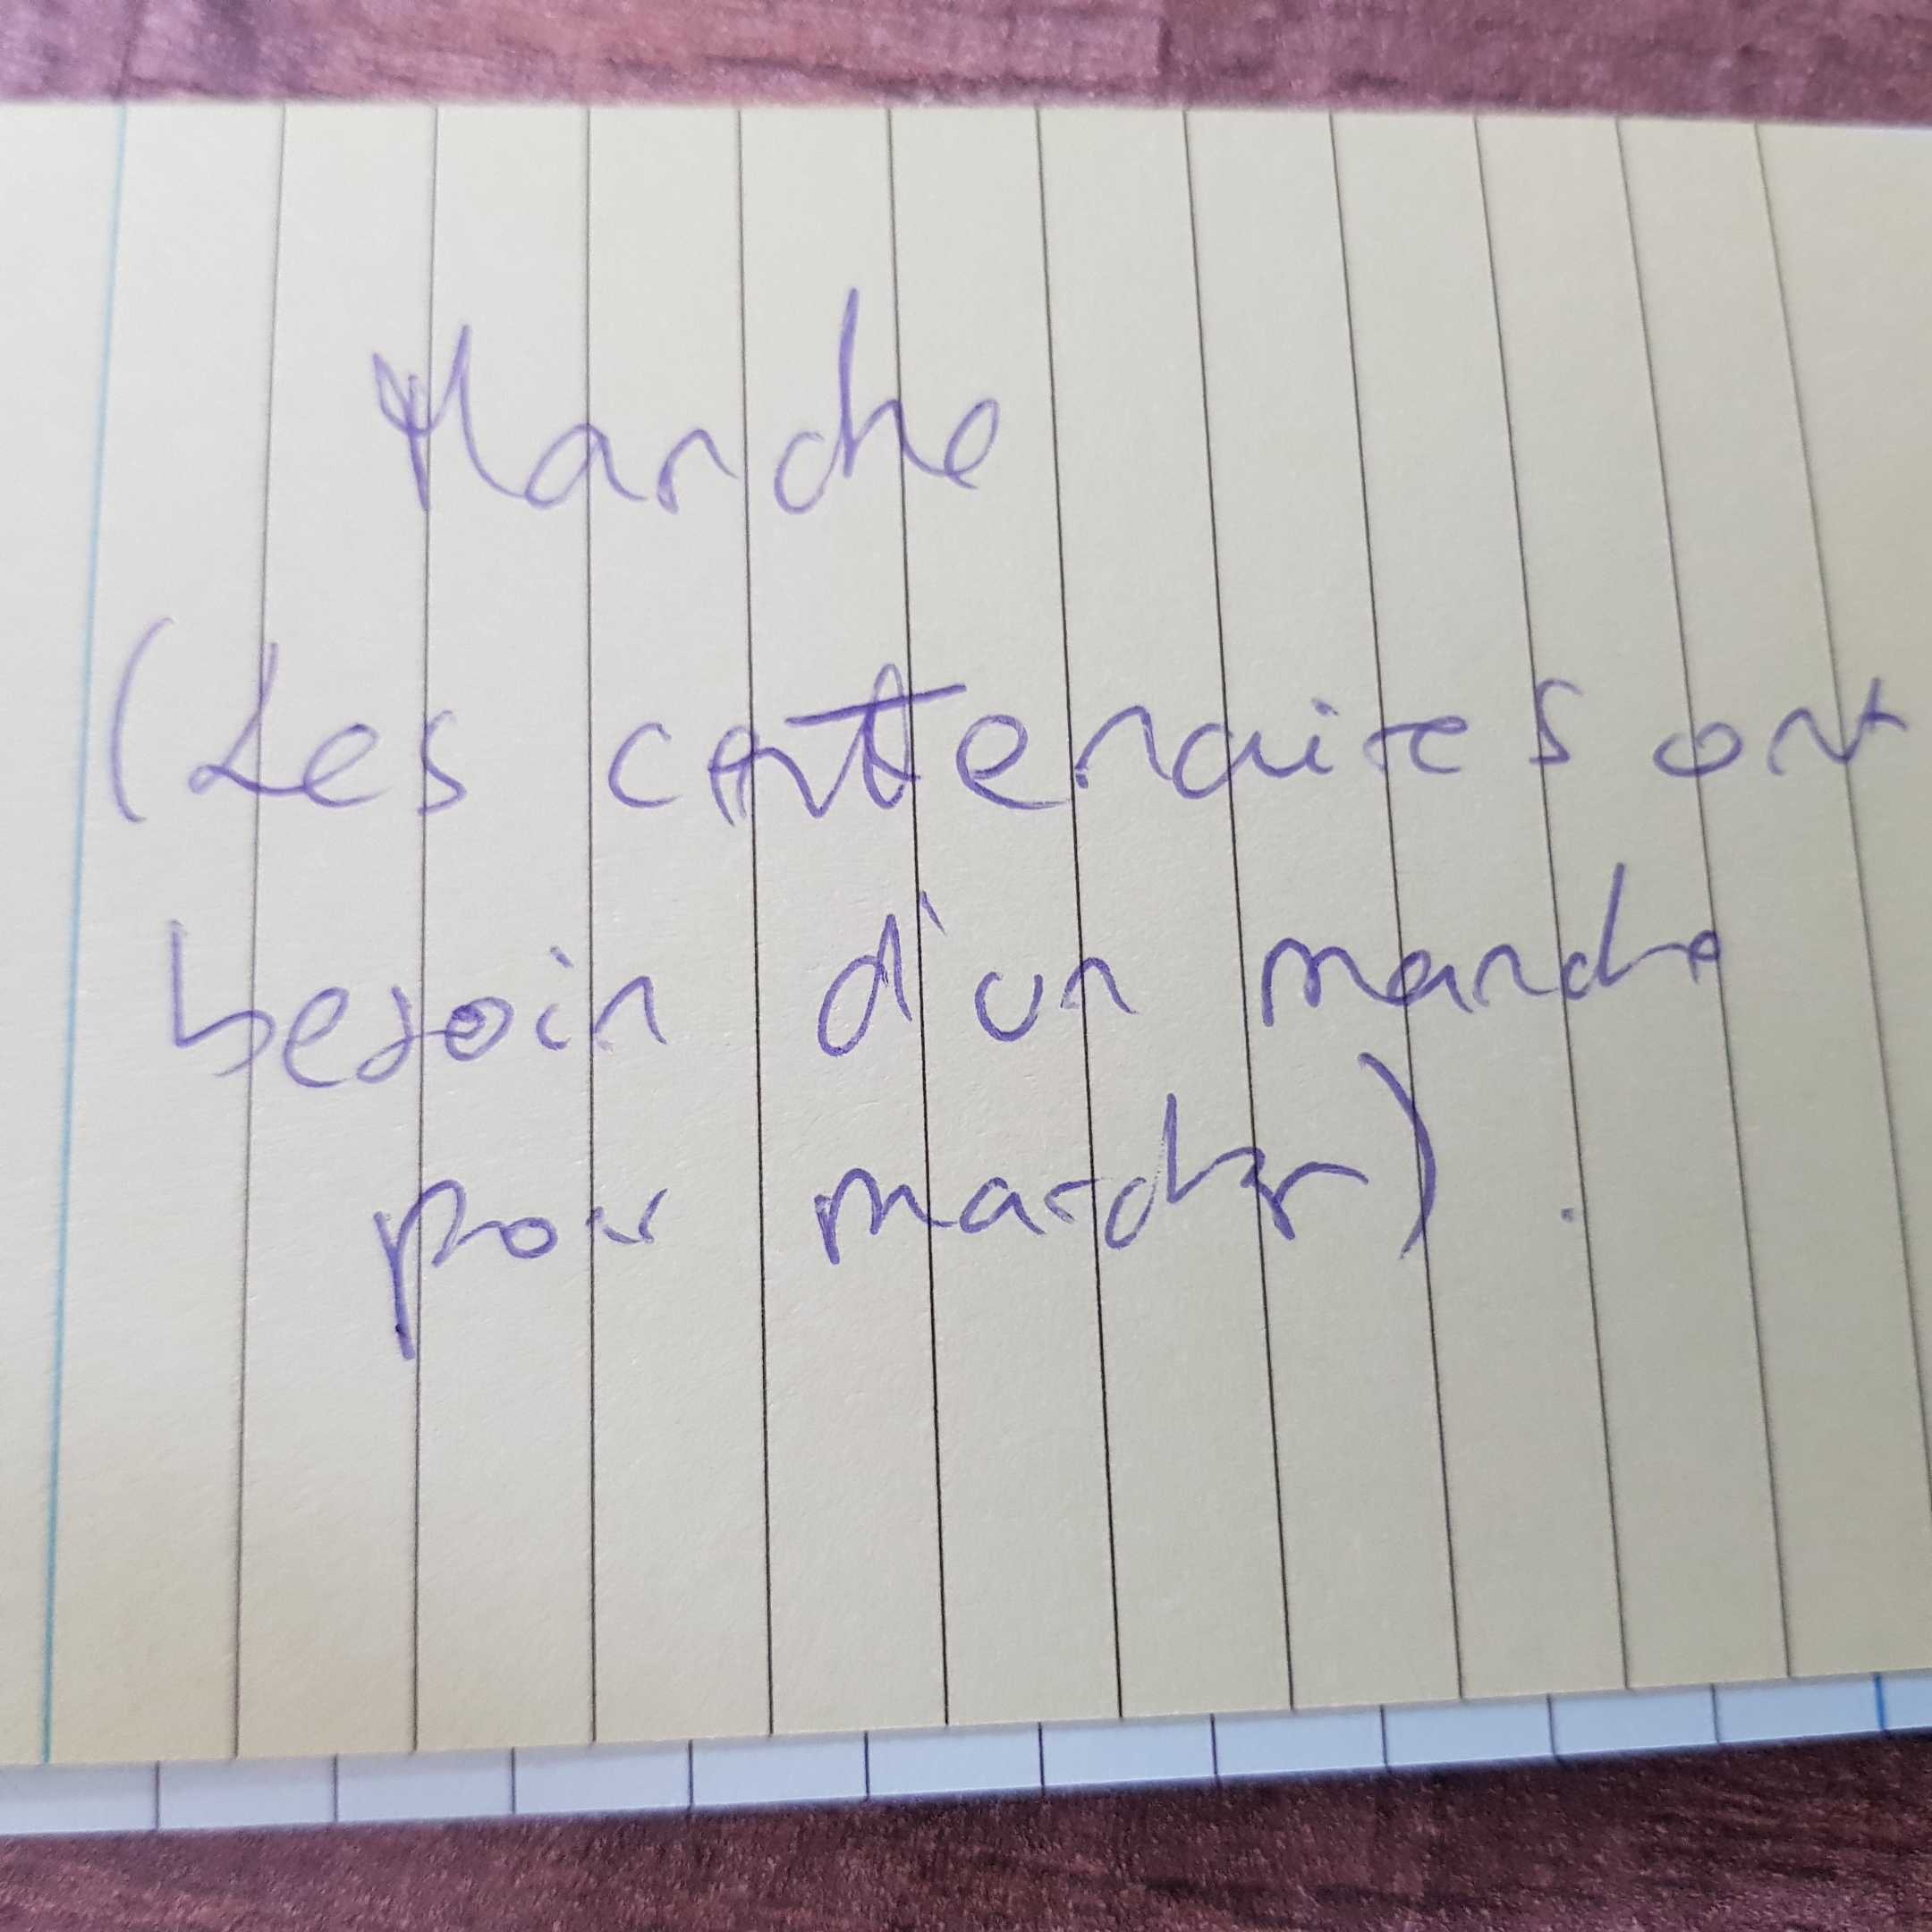 Manche
(Les centenaires ont
besoin d'un manche
pour marcher).